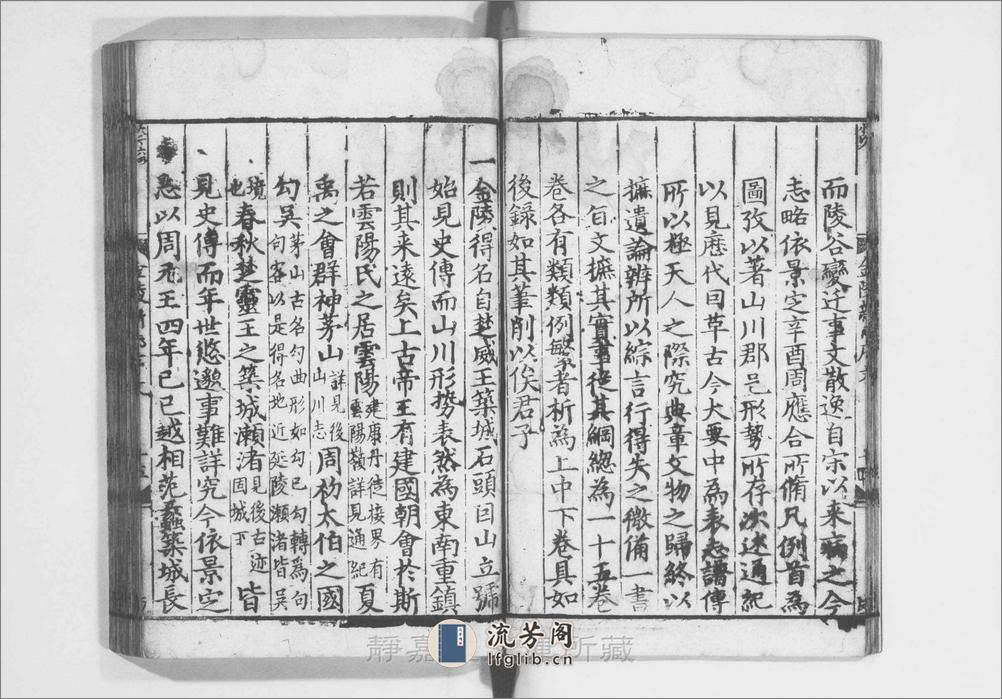 而陵谷變迁事文散逸自宋以来病之今
志略依景定辛酉周應合所脩凡例首為
圖攷以著山川郡邑形勢所存次述通紀
以見歷代因革古今大要中為表志譜傳
所以極天人之際究典章文物之歸終以
摭遺論辨所以綜言行得失之微備一書
之旨文摭其實事從其綱總為一十五卷
卷各有類類例繁者析為上中下卷具如
後録如其筆削以俟君子
一金陵得名自楚威王築城石頭因山立號
始見史傳而山川形勢表然為東南重鎮
則其来遠矣上古帝王有建國朝會於斯
若雲陽氏之居雲陽建康丹徒接界有雲陽嶺詳見通紀夏
禹之會群神茅山詳見後山川志周初太伯之國
勾吳茅山古名勾曲形如勾巳勾轉為句句容以是得名地近延陵瀬渚皆吳
境也春秋楚靈王之築城瀬渚見後古迹固城下皆
見史傳而年世悠邈事難詳究今依景定
志以周元王四年已巳越相范蠡築城長
靜嘉 所藏
流芳阁
lfglib.cn